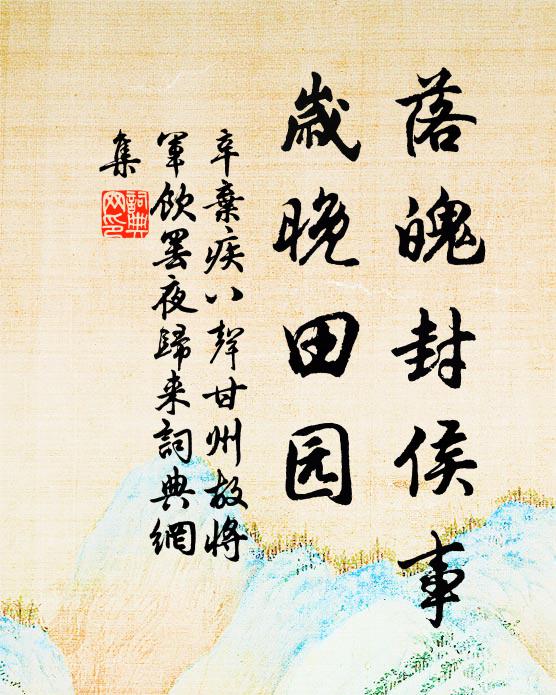 落魄封侯事
歳晚田园
辛棄疾八聲甘州故將
軍飲罢夜歸来詞典網
集
詞典
网印